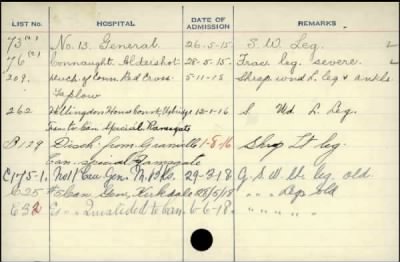 LIST No. HOSPITAL DATE OF ADMISSION REMARKS
73(a) No. 13. General. 26-5-15. S. W. Leg. 2
76(a) Connaught. Aldershot. 28-5-15. Frac. leg. severe. 2
209. Duch. of Conn. Red Cross. 5-11-15 Shrap wound L. leg & ankle
Taplow
262 Hillingdon House Uxbridge 12-1-16 S Wd L. Leg.
Trans to Can Special Ramsgate
B129 Disch. from Granville 1-8-16 Shrap Lt leg.
Can. Special Ramsgate
C175-1. No 11 Can Gen. 29-3-18 G. S. W. Lt. leg. old.
C25 #5 Can Gen, Kirkdale 28/5/18 " " Legs old
C32 to Can. 6-6-18. " " " "